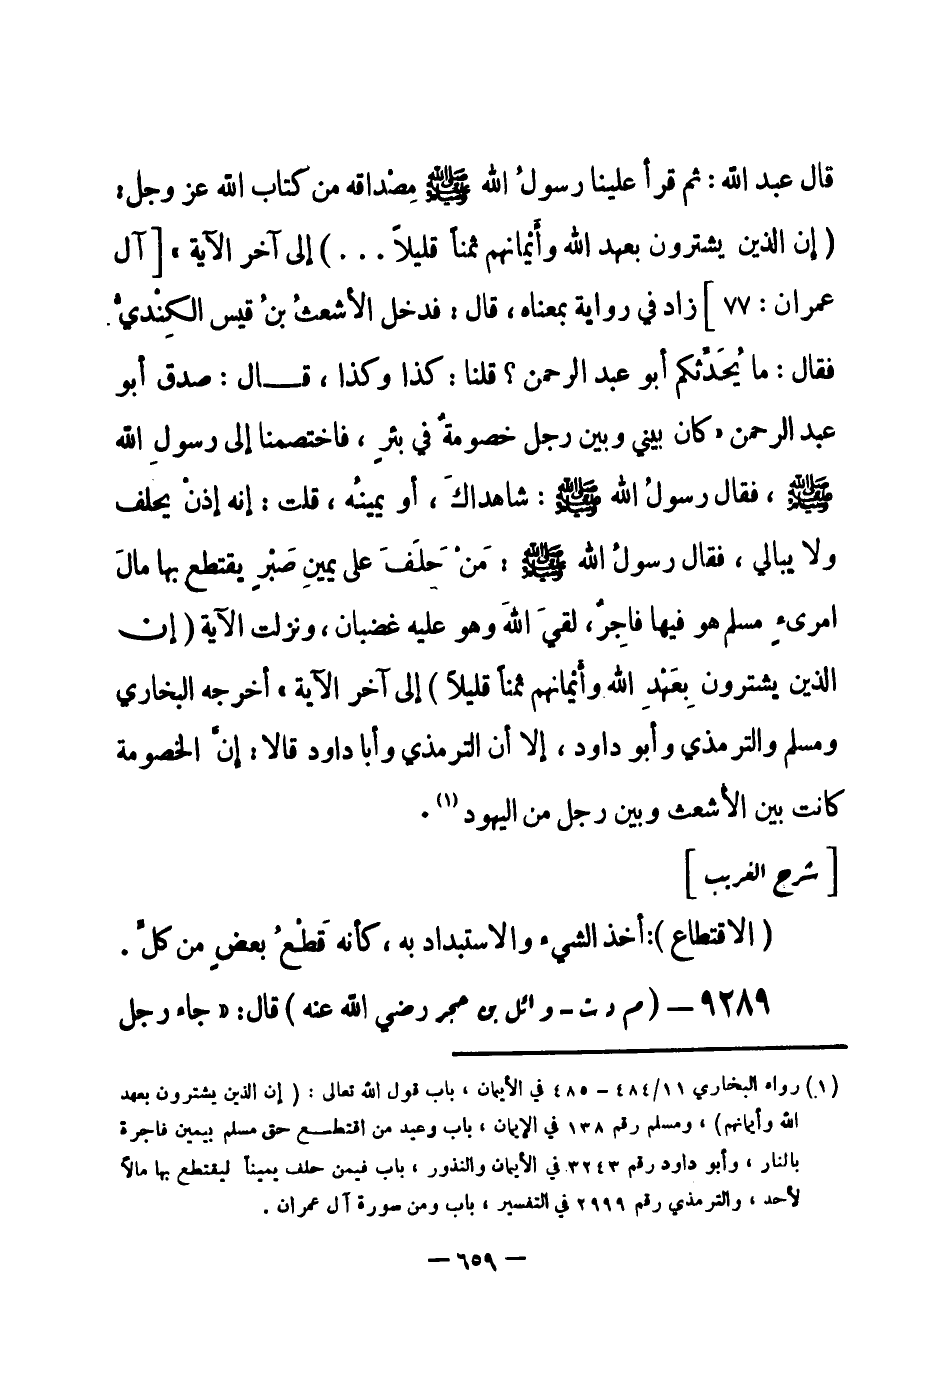 قال عبد الله : ثم قرأ علينا رسولُ الله ﷺ مِصْداقه من كتاب الله عز وجل :
( إن الذين يشترون بعهد الله وأَيْمانهم ثمناً قليلاً . . . ) إلى آخر الآية » [ آل
عمران : ٧٧ ] زاد في رواية بمعناه ، قال : فدخل الأشعثُ بنُ قيس الكِنْديُّ
فقال : ما يُحَدِّثكم أبو عبد الرحمن ؟ قلنا : كذا وكذا ، قـــال : صدق أبو
عبد الرحمن « كان بيني وبين رجل خصومةٌ في بئرٍ ، فاختصمنا إلى رسولِ الله
ﷺ ، فقال رسولُ الله ﷺ : شاهداكَ ، أو يمينُه ، قلت : إنه إذنْ يحلف
ولا يبالي ، فقال رسولُ الله ﷺ : مَنْ حَلَفَ على يمينِ صَبْرٍ يقتطع بها مالَ
امرىءٍ مسلم هو فيها فاجِرٌ، لقيَ اللهَ وهو عليه غضبان ، ونزلت الآية ( إن
الذين يشترون بِعَهْدِ الله وأَيْمانهم ثمناً قليلاً ) إلى آخر الآية » أخرجه البخاري
ومسلم والترمذي وأبو داود ، إلا أن الترمذي وأبا داود قالا : إنَّ الخصومة
كانت بين الأشعث وبين رجل من اليهود (١) .
[ شرح الغريب ]
( الاقتطاع ): أخذ الشيء والاستبداد به ، كأنه قَطْعُ بعضٍ من كلٍّ .
٩٢٨٩ – ( م د ت – وائل بن حجر رضي الله عنه ) قال: « جاء رجل
(١) رواه البخاري ٤٨٤/١١ – ٤٨٥ في الأيمان ، باب قول الله تعالى : ( إن الذين يشترون بعهد
الله وأيمانهم) ، ومسلم رقم ١٣٨ في الإيمان ، باب وعيد من اقتطـــع حق مسلم بيمين فاجرة
بالنار ، وأبو داود رقم ٣٢٤٣ في الأيمان والنذور ، باب فيمن حلف يميناً ليقتطع بها مالاً
لأحد ، والترمذي رقم ٢٩٩٩ في التفسير ، باب ومن سورة آل عمران .
– ٦٥٩ –